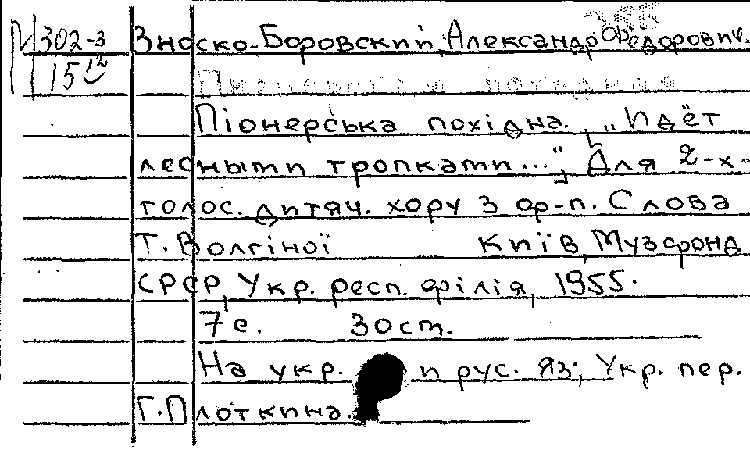 302-3 Зноско-Боровский, Александр Фёдорович.
15
Піонерська похідна. „Идёт
лесными тропками...", Для 2-х
голос. дитяч. хору з ф-п. Слова
Т. Волгіної Київ, Музфонд
СРСР, Укр. респ. філія, 1955.
7 с. 30 cm.
На укр. и рус. яз; Укр. пер.
Г. Плоткина.